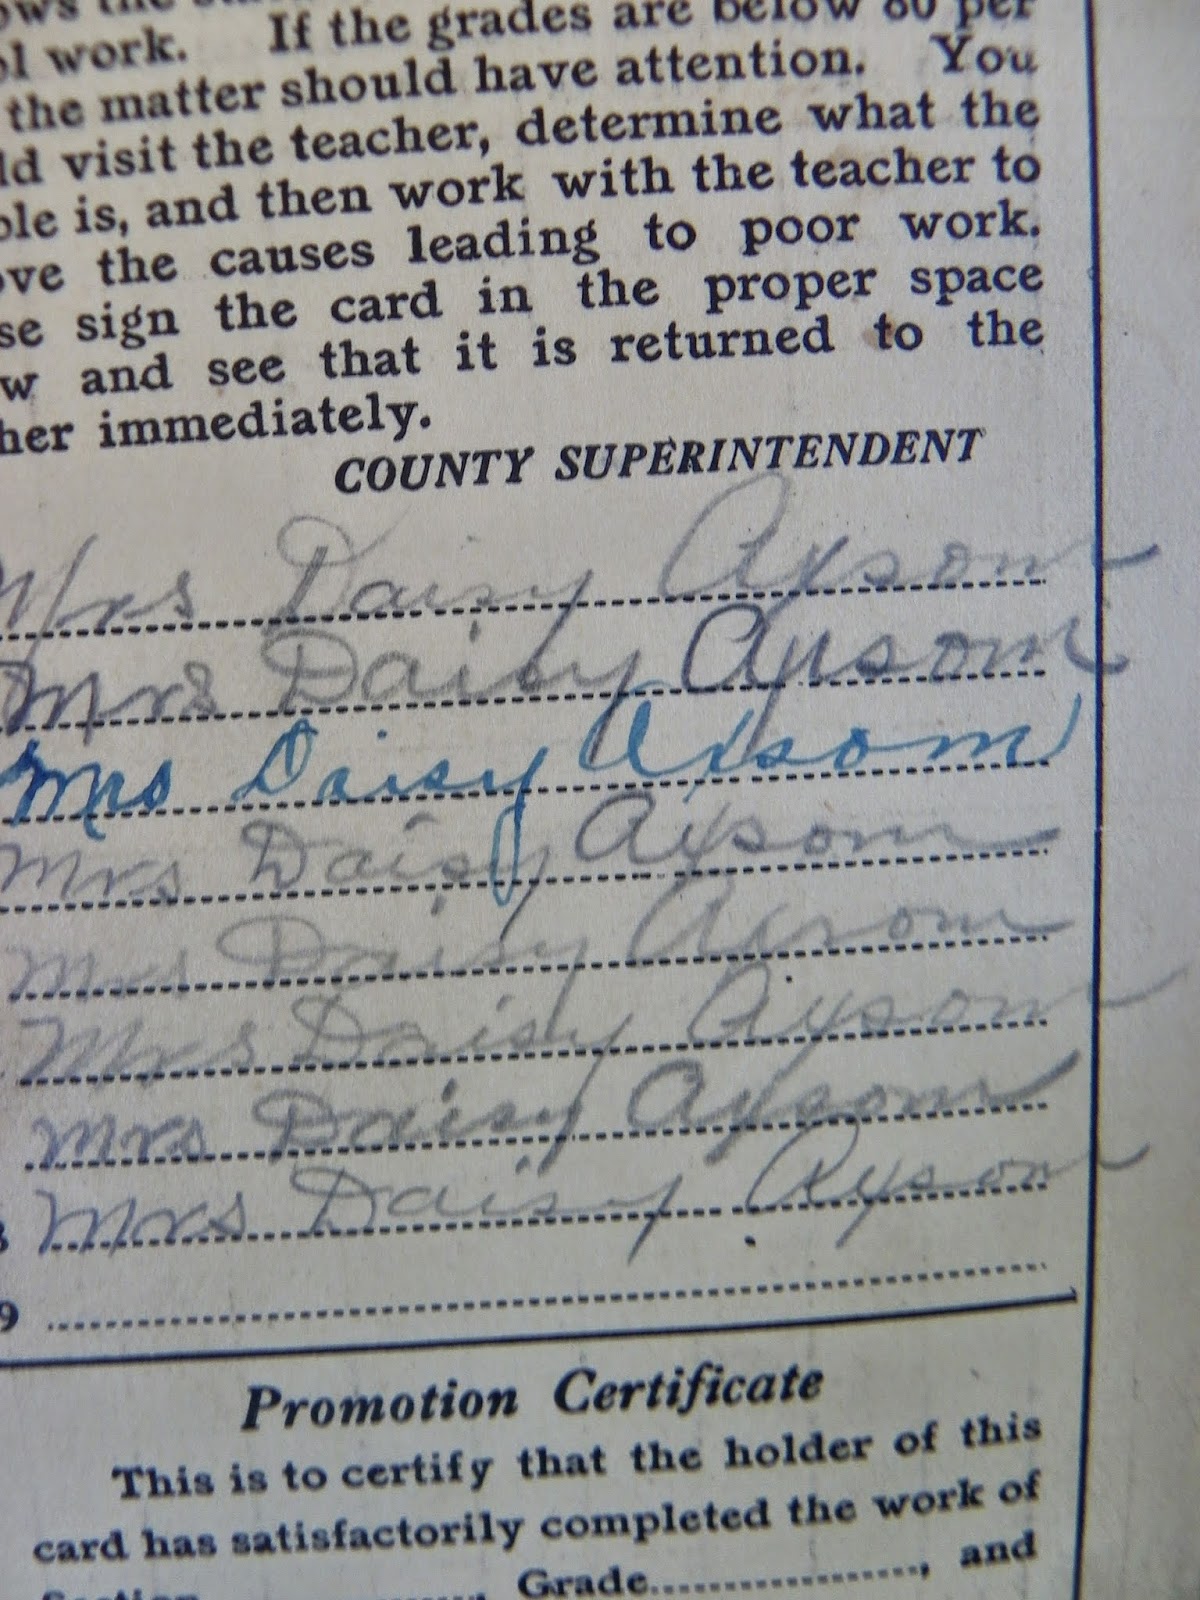 ows the
ol work. If the grades are below 80 per
the matter should have attention. You
ld visit the teacher, determine what the
ble is, and then work with the teacher to
ove the causes leading to poor work.
se sign the card in the proper space
w and see that it is returned to the
her immediately.
COUNTY SUPERINTENDENT
Mrs Daisy Axsom
Mrs Daisy Axsom
Mrs Daisy Axsom
Mrs Daisy Axsom
Mrs Daisy Axsom
Mrs Daisy Axsom
Mrs Daisy Axsom
8 Mrs Daisy Axsom
9
Promotion Certificate
This is to certify that the holder of this
card has satisfactorily completed the work of
Section, Grade, and